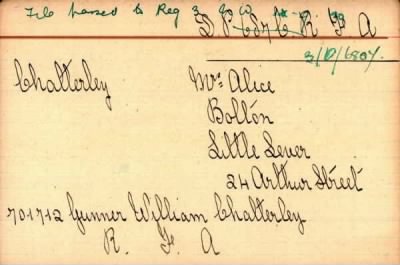 File passed to Reg 3
D P R F A
3/D/6807.
Chatterley Mrs Alice
Bolton
Little Lever
24 Arthur Street
701712 Gunner William Chatterley
R. F. A